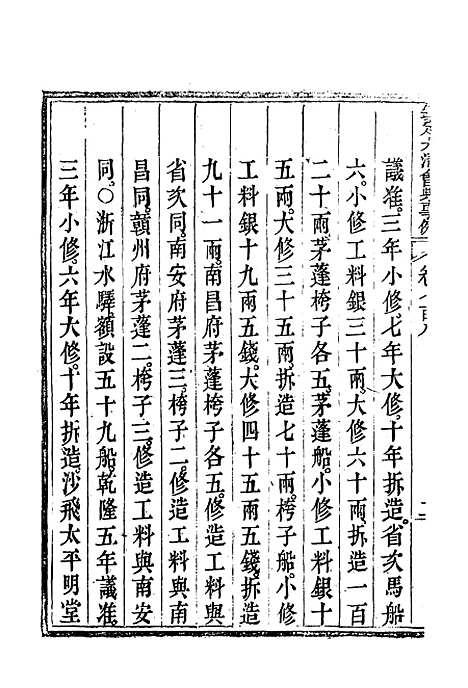 議准。三年小修。七年大修。十年拆造。省次馬船
六。小修工料銀三十兩。大修六十兩。拆造一百
二十兩。茅蓬桍子各五。茅蓬船。小修工料銀十
五兩。大修三十五兩。拆造七十兩。桍子船。小修
工料銀十九兩五錢。大修四十五兩五錢。拆造
九十一兩。南昌府茅蓬桍子各五。修造工料與
省次同。南安府茅蓬三。桍子二。修造工料與南
昌同。贛州府茅蓬二。桍子三。修造工料與南安
同。○浙江水驛額設五十九船。乾隆五年議准。
三年小修。六年大修。十年拆造。沙飛太平明堂